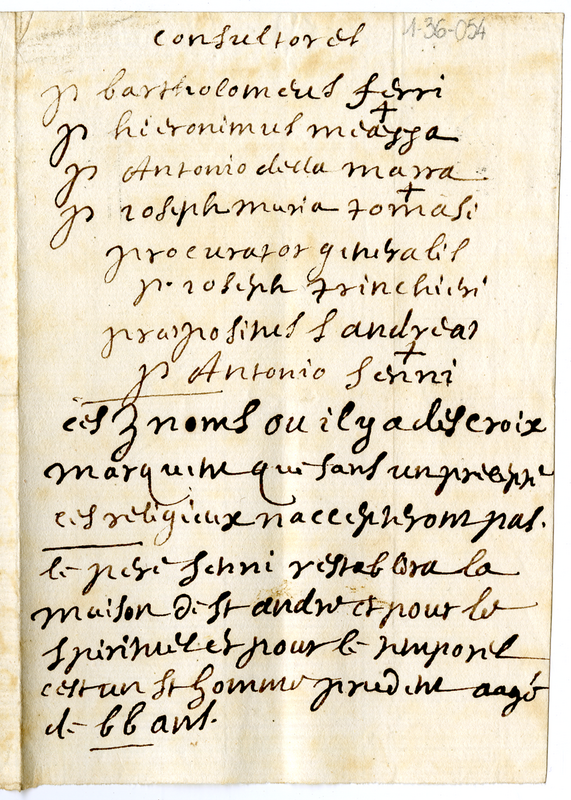 1-36-054
consultores
p bartholomeus ferri
p hieronimus meazza
p Antonio della marra
p ioseph maria tomasi
procurator generalis
p. ioseph trinchieri
præpositus s andreæ
p Antonio senni
ces 3 noms ou il y a des croix
marquent que sans un
ces religieux n accepteront pas.
le pere senni restablira la
maison de st andre et pour le
spirituel et pour le temporel
cest un st homme prudent aagé
de 66 ans.